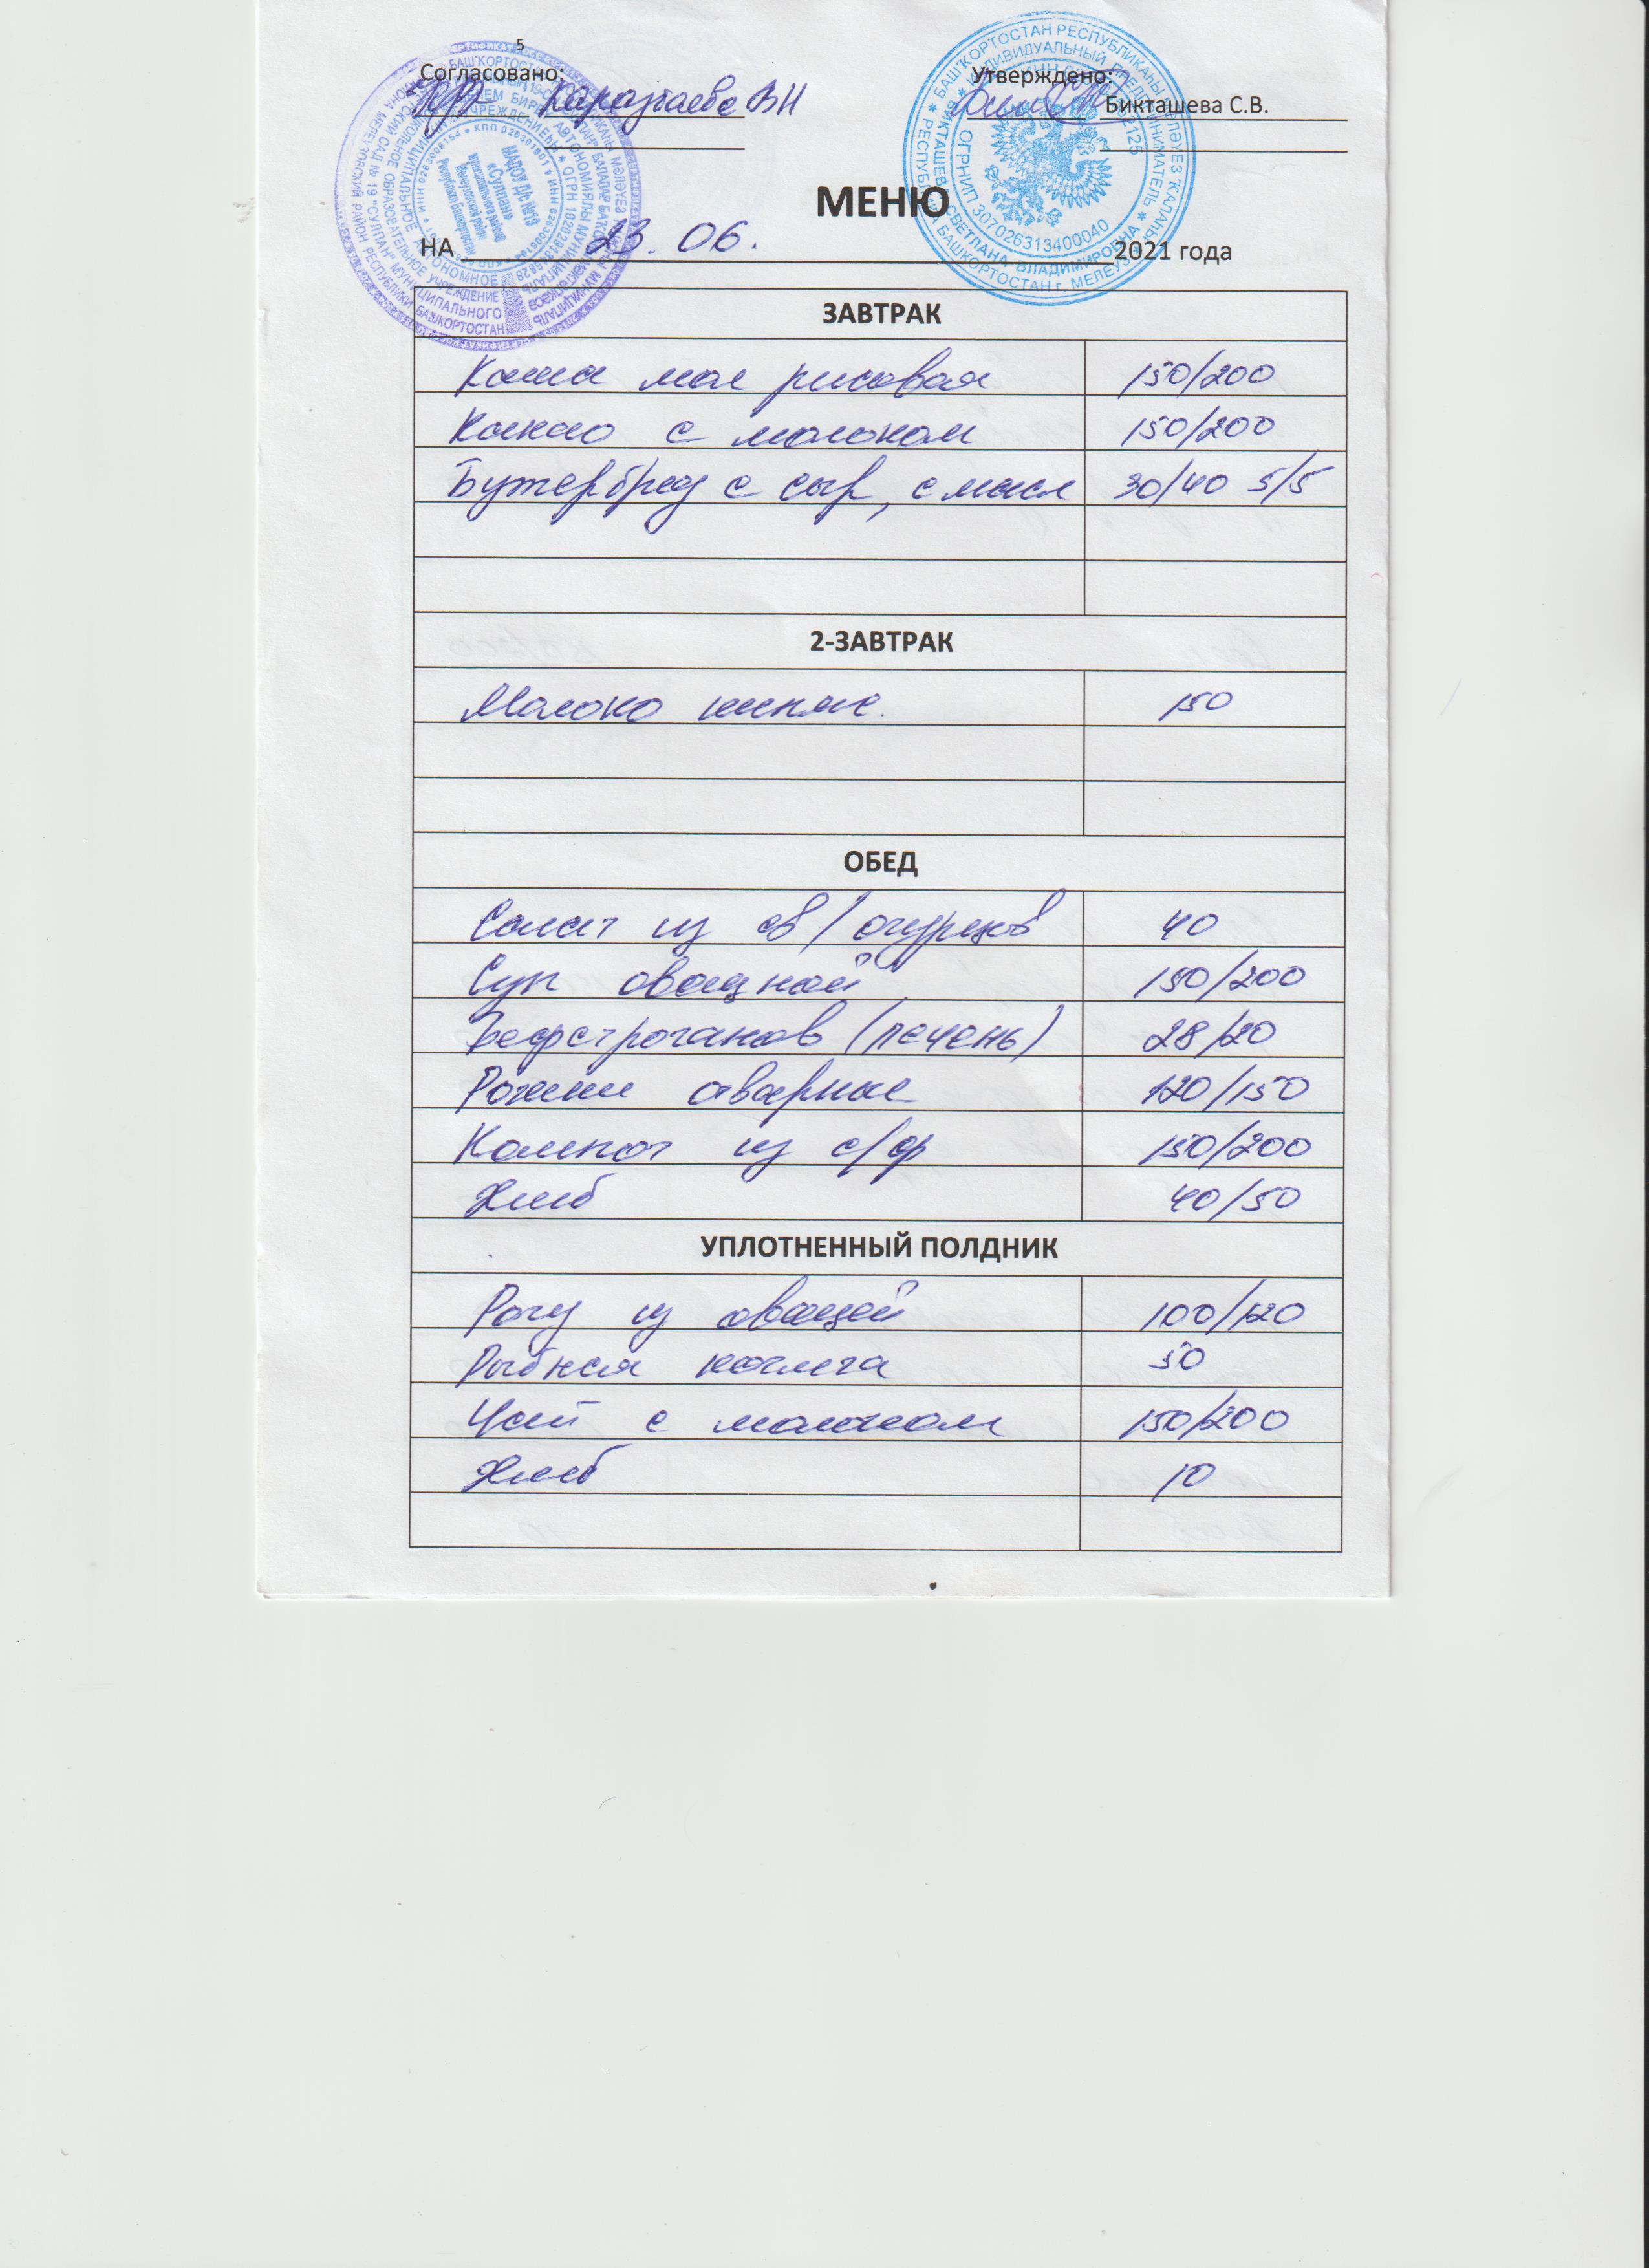 5
Согласовано:
Утверждено:
Бикташева С.В.
МЕНЮ
НА 23. 06. 2021 года
ЗАВТРАК
Каша мол рисовая 150/200
Какао с молоком 150/200
Бутерброд с сыр, с масл 30/40 5/5
2-ЗАВТРАК
Молоко кипяч. 150
ОБЕД
Салат из св/огурцов 40
Суп овощной 150/200
Бефстроганов (печень) 28/20
Рожки отварные 120/150
Компот из с/ф 150/200
Хлеб 40/50
УПЛОТНЕННЫЙ ПОЛДНИК
Рагу из овощей 100/120
Рыбная котлета 50
Чай с молоком 150/200
Хлеб 10